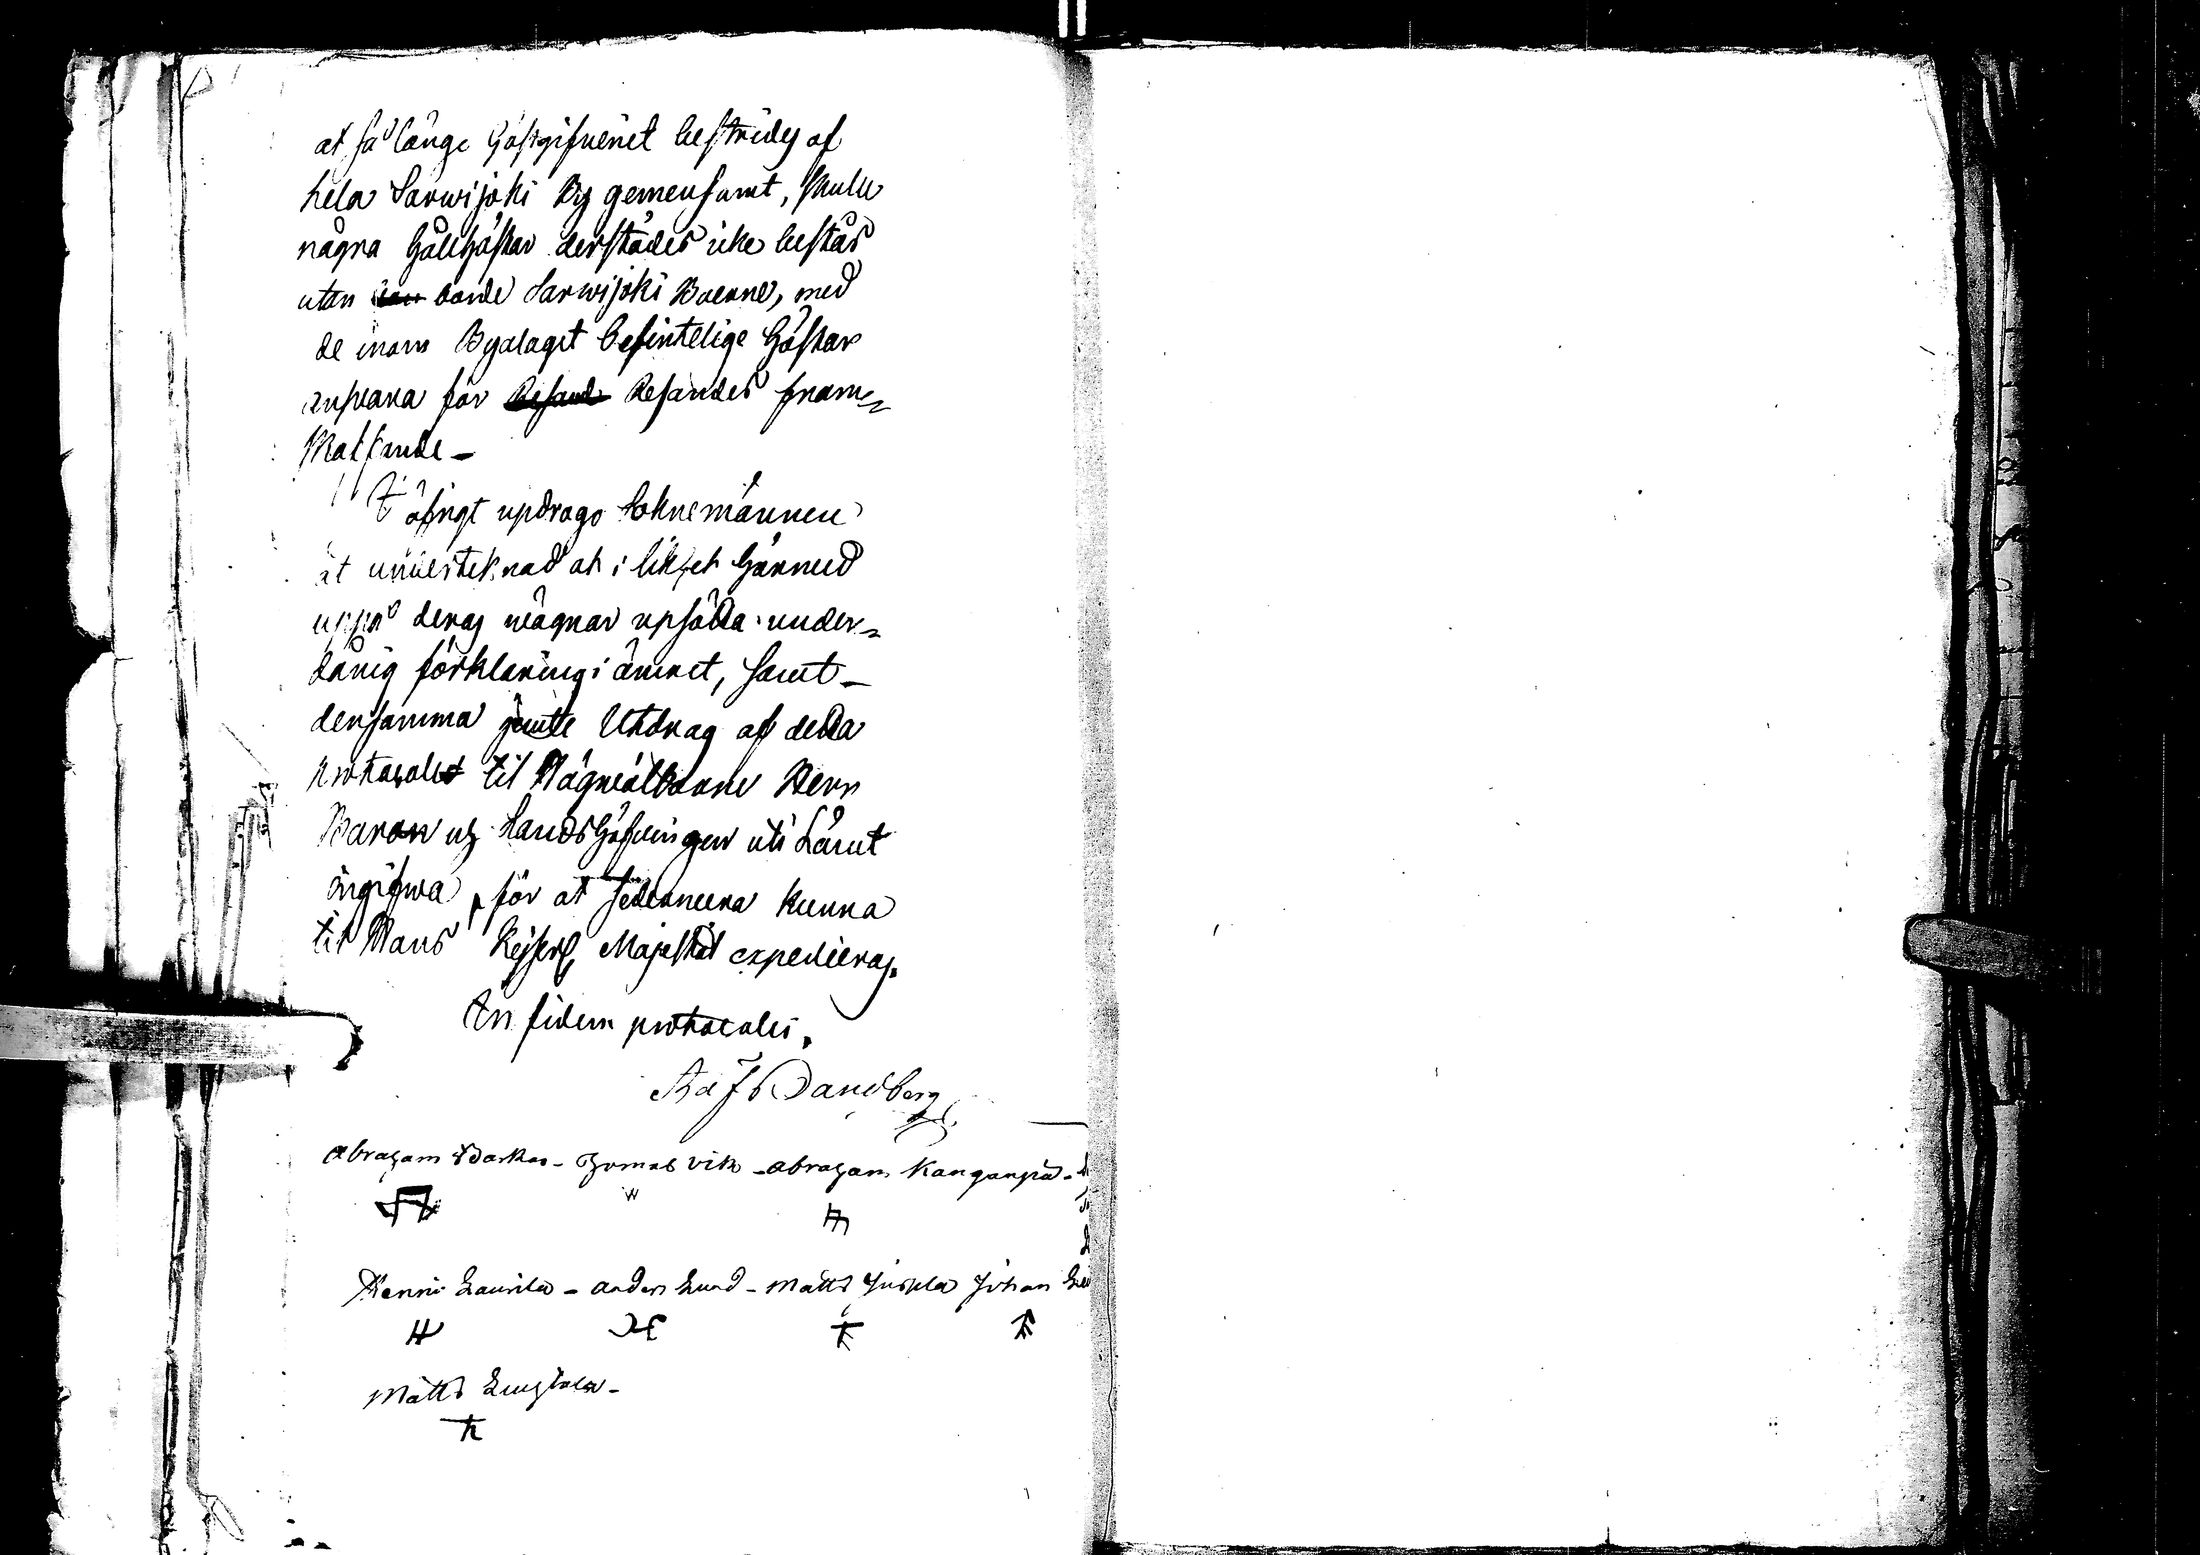 at så länge Gästgifveriet bestrides af
hela Sarwijoki By gemensamt, skulle
några Hållhästar derstädes icke bestås
utan borde Sarwijoki Boerne, med
de inom Byalaget befintelige Hästar
ansvara för Resandes fram-
skaffande -
I öfrigt updrogo Soknemännen
åt underteknad at i likhet härmed
uppå deras vägnar upsätta under-
dånig förklaring i ämnet, samt
densamma jemte Utdrag af detta
protocollet til Högvälborne Herr
Baron och Landshöfdingen uti Länet
ingifwa, för at sedermera kunna
til Hans Kejserl. Majestät expedieras.
In fidem protocolli,
Sandberg
Abraham - Thomas Vik - Abraham Kanganpä -
Henric Laurila - Anders Lund - Matts Juspla Johan
Matts